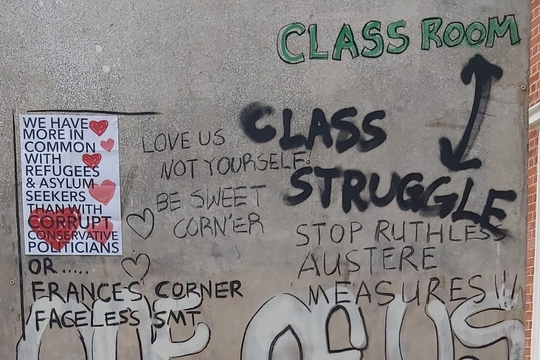 CLASS ROOM
CLASS
STRUGGLE
WE HAVE
MORE IN
COMMON
WITH
REFUGEES
& ASYLUM
SEEKERS
THAN WITH
CORRUPT
CONSERVATIVE
POLITICIANS
LOVE US
NOT YOURSELF.
BE SWEET
CORN'ER
STOP RUTHLESS
AUSTERE
MEASURES!!!
OR.....
FRANCES CORNER
FACELESS SMT